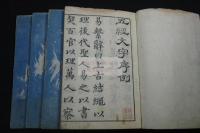 五經文字序例
易繫辭曰上古結繩以
理後代聖人易之以書
契百官以理萬人以察